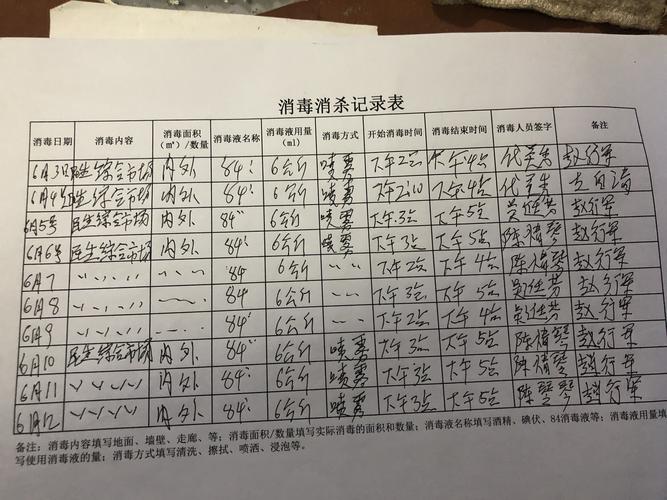 消毒消杀记录表
消毒日期 消毒内容 消毒面积(㎡)/数量 消毒液名称 消毒液用量(ml) 消毒方式 开始消毒时间 消毒结束时间 消毒人员签字 备注
6月3日 民生综合市场 内外 84 6公斤 喷雾 下午2点 下午4点 赵行军
6月4号 民生综合市场 内外 84 6公斤 喷雾 下午2:10 下午4点
6月5号 民生综合市场 内外 84 6公斤 喷雾 下午3点 下午5点 赵行军
6月6号 民生综合市场 内外 84 6公斤 喷雾 下午3点 下午5点 陈倩琴 赵行军
6月7 〃〃〃〃 〃〃 84 6公斤 〃〃 下午2点 下午4点 陈倩琴 赵行军
6月8 〃〃〃〃 〃〃 84 6公斤 〃〃 下午3点 下午5点 赵行军
6月9 〃〃〃〃 〃〃 84 6公斤 〃〃 下午2点 下午4点 赵行军
6月10 民生综合市场 内外 84 6公斤 喷雾 下午3点 下午5点 陈倩琴 赵行军
6月11 〃〃〃〃 内外 84 6公斤 喷雾 下午3点 下午5点 陈倩琴 赵行军
6月12 〃〃〃〃 内外 84 6公斤 喷雾 下午3点 下午5点 赵行军
备注：消毒内容填写地面、墙壁、走廊、等；消毒面积/数量填写实际消毒的面积和数量；消毒液名称填写酒精、碘伏、84消毒液等；消毒液用量填
写使用消毒液的量；消毒方式填写清洗、擦拭、喷洒、浸泡等。